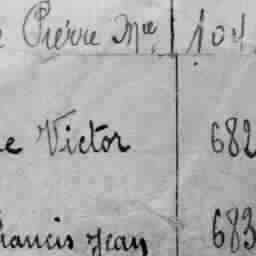 Pierre Mce
e Victor 682
rancis Jean 683